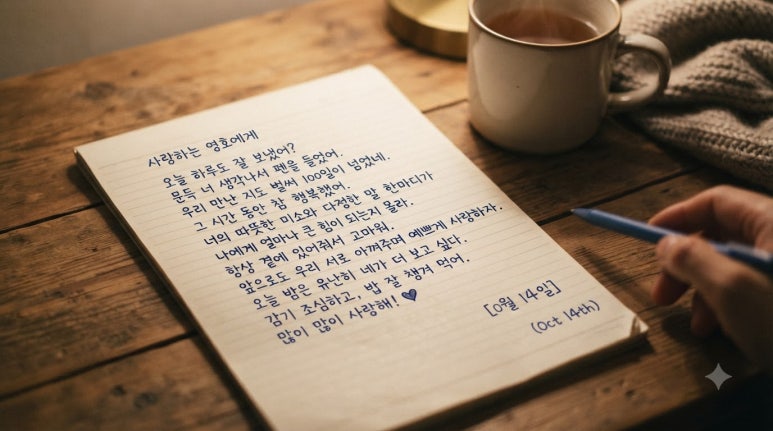 사랑하는 영호에게
오늘 하루도 잘 보냈어?
문득 너 생각나서 펜을 들었어.
우리 만난 지도 벌써 100일이 넘었네.
그 시간 동안 참 행복했어.
너의 따뜻한 미소와 다정한 말 한마디가
나에게 얼마나 큰 힘이 되는지 몰라.
항상 곁에 있어줘서 고마워.
앞으로도 우리 서로 아껴주며 예쁘게 사랑하자.
오늘 밤은 유난히 네가 더 보고 싶다.
감기 조심하고, 밥 잘 챙겨 먹어.
많이 많이 사랑해! ♥
[0월 14일]
(Oct 14th)